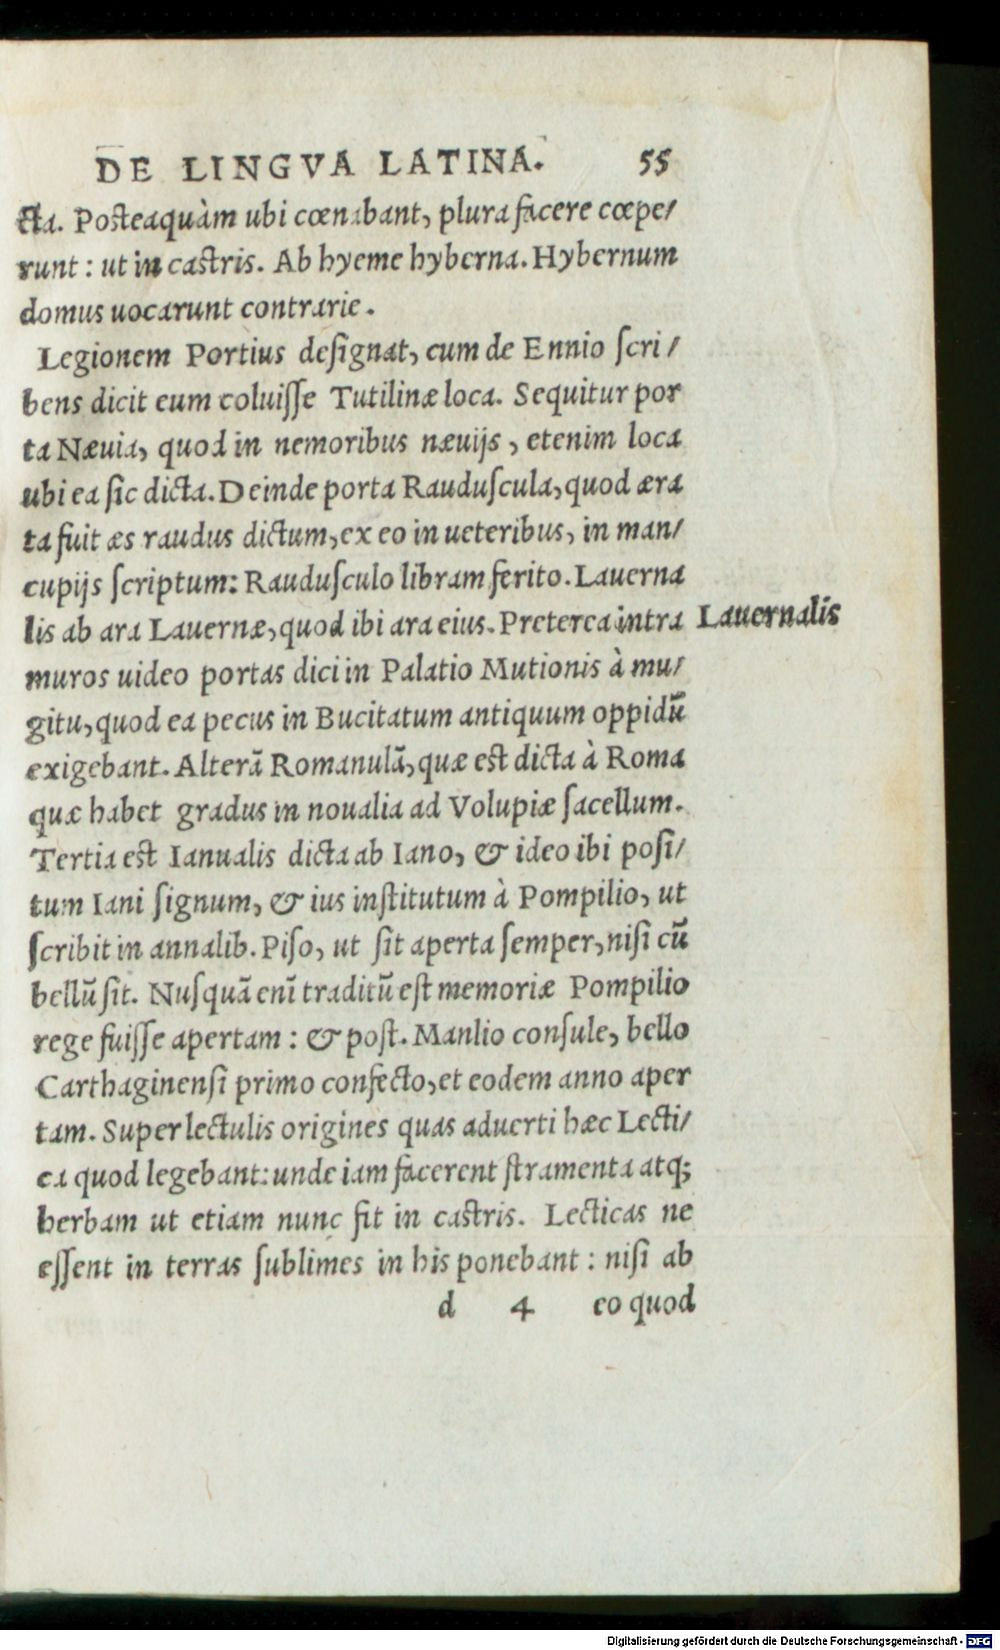 DE LINGVA LATINA. 55
cta. Posteaquàm ubi cœnabant, plura facere cœpe/
runt: ut in castris. Ab hyeme hyberna. Hybernum
domus uocarunt contrarie.
Legionem Portius deſignat, cum de Ennio ſcri/
bens dicit eum coluiſſe Tutilinæ loca. Sequitur por
ta Næuia, quod in nemoribus næuijs, etenim loca
ubi ea ſic dicta. Deinde porta Rauduſcula, quod æra
ta fuit æs raudus dictum, ex eo in ueteribus, in man/
cupijs ſcriptum: Rauduſculo libram ferito. Lauerna
lis ab ara Lauernæ, quod ibi ara eius. Preterea intra
Lauernalis
muros uideo portas dici in Palatio Mutionis à mu/
gitu, quod ea pecus in Bucitatum antiquum oppidũ
exigebant. Alterã Romanulã, quæ est dicta à Roma
quæ habet gradus in noualia ad Volupiæ ſacellum.
Tertia est Ianualis dicta ab Iano, & ideo ibi poſi/
tum Iani ſignum, & ius inſtitutum à Pompilio, ut
ſcribit in annalib. Piſo, ut ſit aperta ſemper, niſi cũ
bellũ ſit. Nuſquã enĩ traditũ eſt memoriæ Pompilio
rege fuiſſe apertam: & poſt. Manlio conſule, bello
Carthaginenſi primo confecto, et eodem anno aper
tam. Super lectulis origines quas aduerti hæc Lecti/
ca quod legebant: unde iam facerent ſtramenta atq;
herbam ut etiam nunc fit in castris. Lecticas ne
eſſent in terras ſublimes in his ponebant: niſi ab
d 4 eo quod
Digitalisierung gefördert durch die Deutsche Forschungsgemeinschaft - DFG